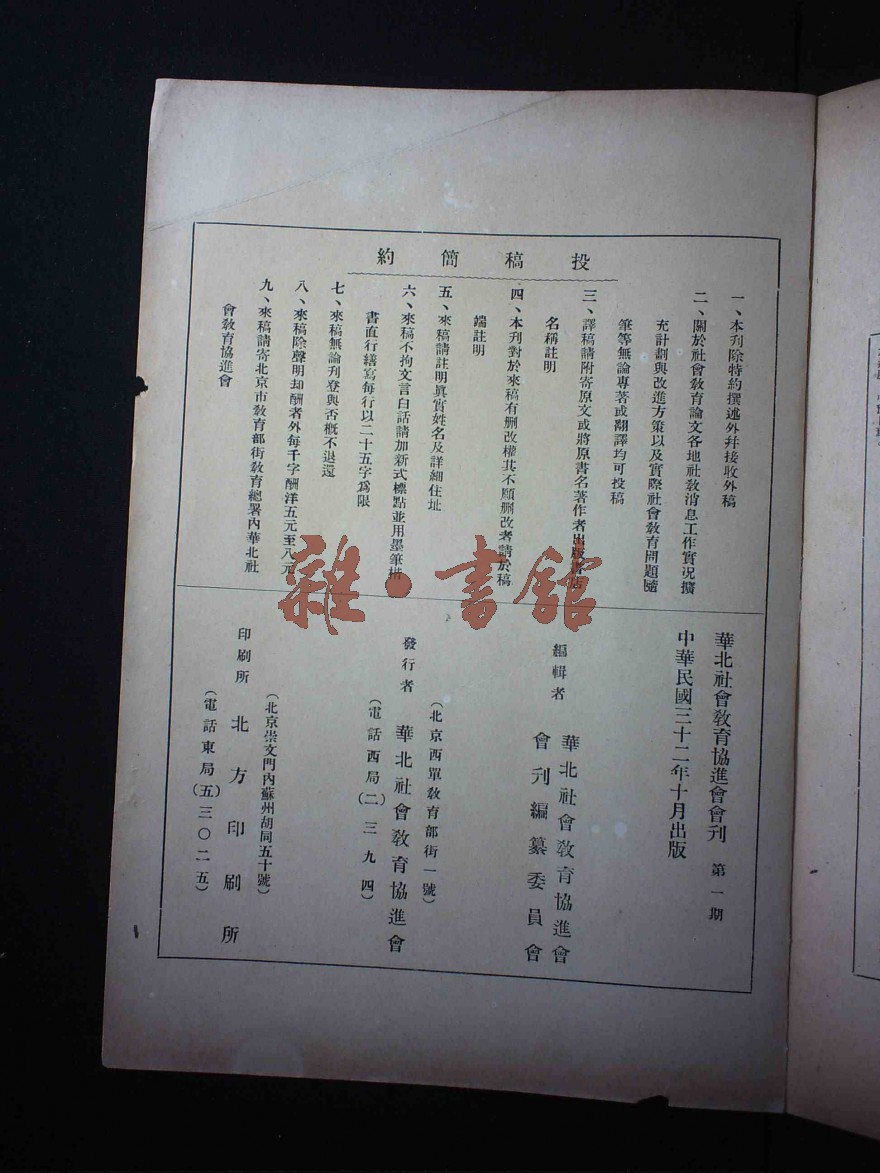 投稿簡約
一、本刊除特約撰述外幷接收外稿
二、關於社會敎育論文各地社敎消息工作實况擴
充計劃與改進方策以及實際社會敎育問題隨
筆等無論專著或翻譯均可投稿
三、譯稿請附寄原文或將原書名著作者出版書店
名稱註明
四、本刊對於來稿有删改權其不願删改者請於稿
端註明
五、來稿請註明眞實姓名及詳細住址
六、來稿不拘文言白話請加新式標點並用墨筆楷
書直行繕寫每行以二十五字爲限
七、來稿無論刊登與否概不退還
八、來稿除聲明却酬者外每千字酬洋五元至八元
九、來稿請寄北京市敎育部街敎育總署內華北社
會敎育協進會
華北社會敎育協進會會刊 第一期
中華民國三十二年十月出版
編輯者 華北社會敎育協進會
會刊編纂委員會
(北京西單敎育部街一號)
發行者 華北社會敎育協進會
(電話西局(二)三九四)
(北京崇文門內蘇州胡同五十號)
印刷所 北方印刷所
(電話東局(五)三〇二五)
雜·書館